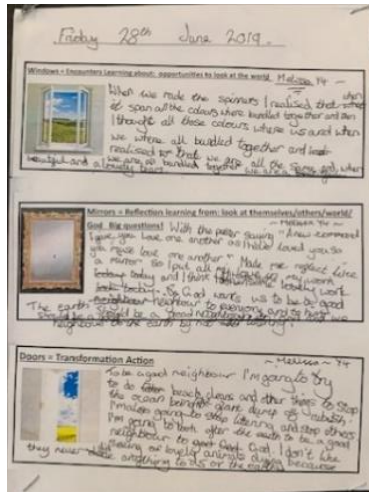 Friday 28th June 2019.
Windows = Encounters Learning about: opportunities to look at the world Melissa Y4
When we made the spinners I realised that when
it span all the colours where bundled together and then
I thought all those colours where us and when
we where all bundled together and
realised that we are all the same and when
we are all bundled together we are a
beautiful and a lovely team
Mirrors = Reflection learning from: look at themselves/others/world/
God Big questions! With the saying "A new command
~ Melissa Y4 ~
I give you love one another as I have loved you so
you must love one another" Made me reflect like
a mirror so I put all my love in my work
today and I think lovely work
So God wants us to be good
neighbour to everyone and to
The earth
neighbour to the earth by not littering.
Doors = Transformation Action
~ Melissa ~ Y4
To be a good neighbour I'm going to try
to do beach cleans and other things to stop
the ocean being a giant dump of rubbish.
I'm also going to stop litering and stop others
I'm going to look after the earth to be a good
neighbour to God. I don't like
making our lovely animals dying because
they never did anything to us or the earth